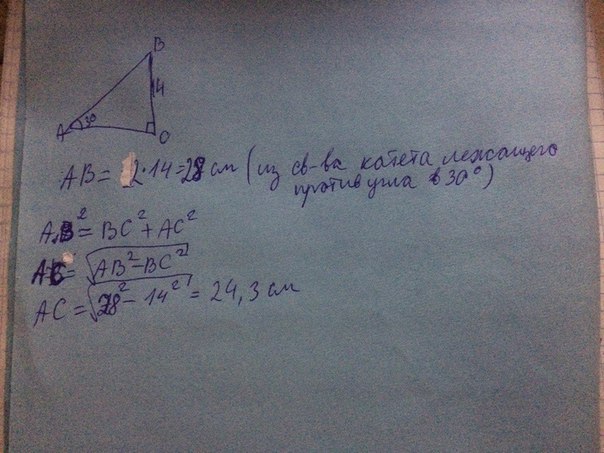 B
14
A 30 O
AB = 2·14=28 см (из св-ва катета лежащего
против угла в 30°)
AB² = BC² + AC²
AC = √AB²-BC²
AC = √28² - 14² = 24,3 см